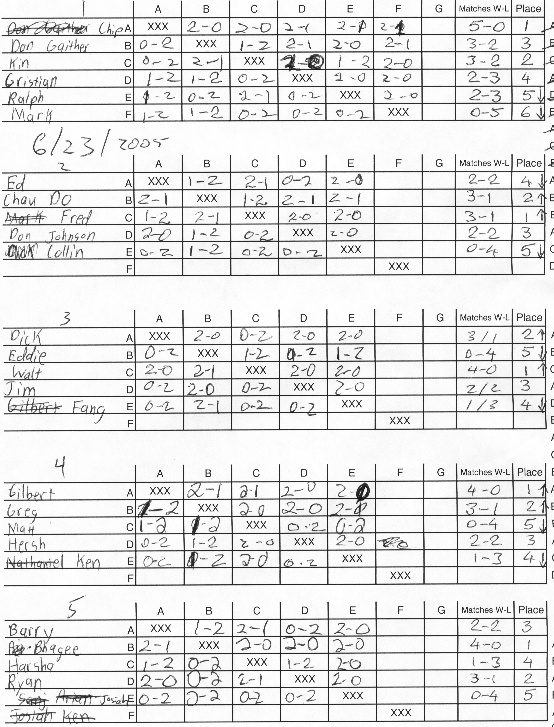 A B C D E F G Matches W-L Place
Chip A XXX 2-0 2-0 2-1 2-1 2-1 5-0 1
Don Gaither B 0-2 XXX 1-2 2-1 2-0 2-1 3-2 3
Kin C 0-2 2-1 XXX 2-0 1-2 2-0 3-2 2
Cristian D 1-2 1-2 0-2 XXX 2-0 2-0 2-3 4
Ralph E 1-2 0-2 2-1 0-2 XXX 2-0 2-3 5↓
Mark F 1-2 1-2 0-2 0-2 0-2 XXX 0-5 6↓
6/23/2005
2
A B C D E F G Matches W-L Place
Ed A XXX 1-2 2-1 0-2 2-0 2-2 4↓
Chau Do B 2-1 XXX 1-2 2-1 2-1 3-1 2↑
Mark Fred C 1-2 2-1 XXX 2-0 2-0 3-1 1↑
Don Johnson D 2-0 1-2 0-2 XXX 2-0 2-2 3
Collin E 0-2 1-2 0-2 0-2 XXX 0-4 5↓
F XXX
3
A B C D E F G Matches W-L Place
Dick A XXX 2-0 0-2 2-0 2-0 3/1 2↑
Eddie B 0-2 XXX 1-2 0-2 1-2 0-4 5↓
Walt C 2-0 2-1 XXX 2-0 2-0 4-0 1↑
Jim D 0-2 2-0 0-2 XXX 2-0 2/2 3
Gilbert Fang E 0-2 2-1 0-2 0-2 XXX 1/3 4↓
F XXX
4
A B C D E F G Matches W-L Place
Gilbert A XXX 2-1 2-1 2-0 2-0 4-0 1↑
Greg B 1-2 XXX 2-0 2-0 2-0 3-1 2↑
Matt C 1-2 1-2 XXX 0-2 0-2 0-4 5↓
Hersh D 0-2 1-2 2-0 XXX 2-0 2-2 3
Nathaniel Ken E 0-2 0-2 2-0 0-2 XXX 1-3 4↓
F XXX
5
A B C D E F G Matches W-L Place
Barry A XXX 1-2 2-1 0-2 2-0 2-2 3
Bhagee B 2-1 XXX 2-0 2-0 2-0 4-0 1
Harsha C 1-2 0-2 XXX 1-2 2-0 1-3 4
Ryan D 2-0 0-2 2-1 XXX 2-0 3-1 2
Josiah E 0-2 0-2 0-2 0-2 XXX 0-4 5
Josiah Ken F XXX